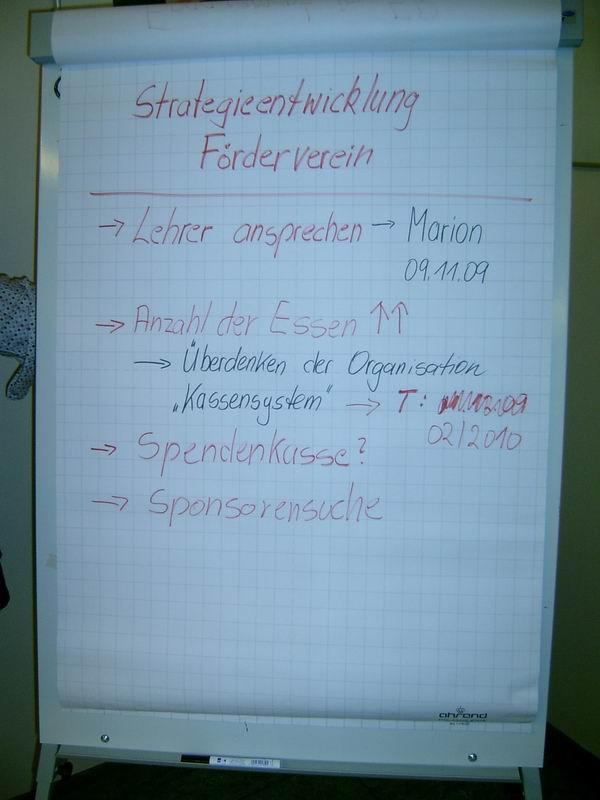 Strategieentwicklung
Förderverein
→ Lehrer ansprechen → Marion
09.11.09
→ Anzahl der Essen ↑↑
→ Überdenken der Organisation
„Kassensystem" → T: 09
02/2010
→ Spendenkasse?
→ Sponsorensuche
ahrend